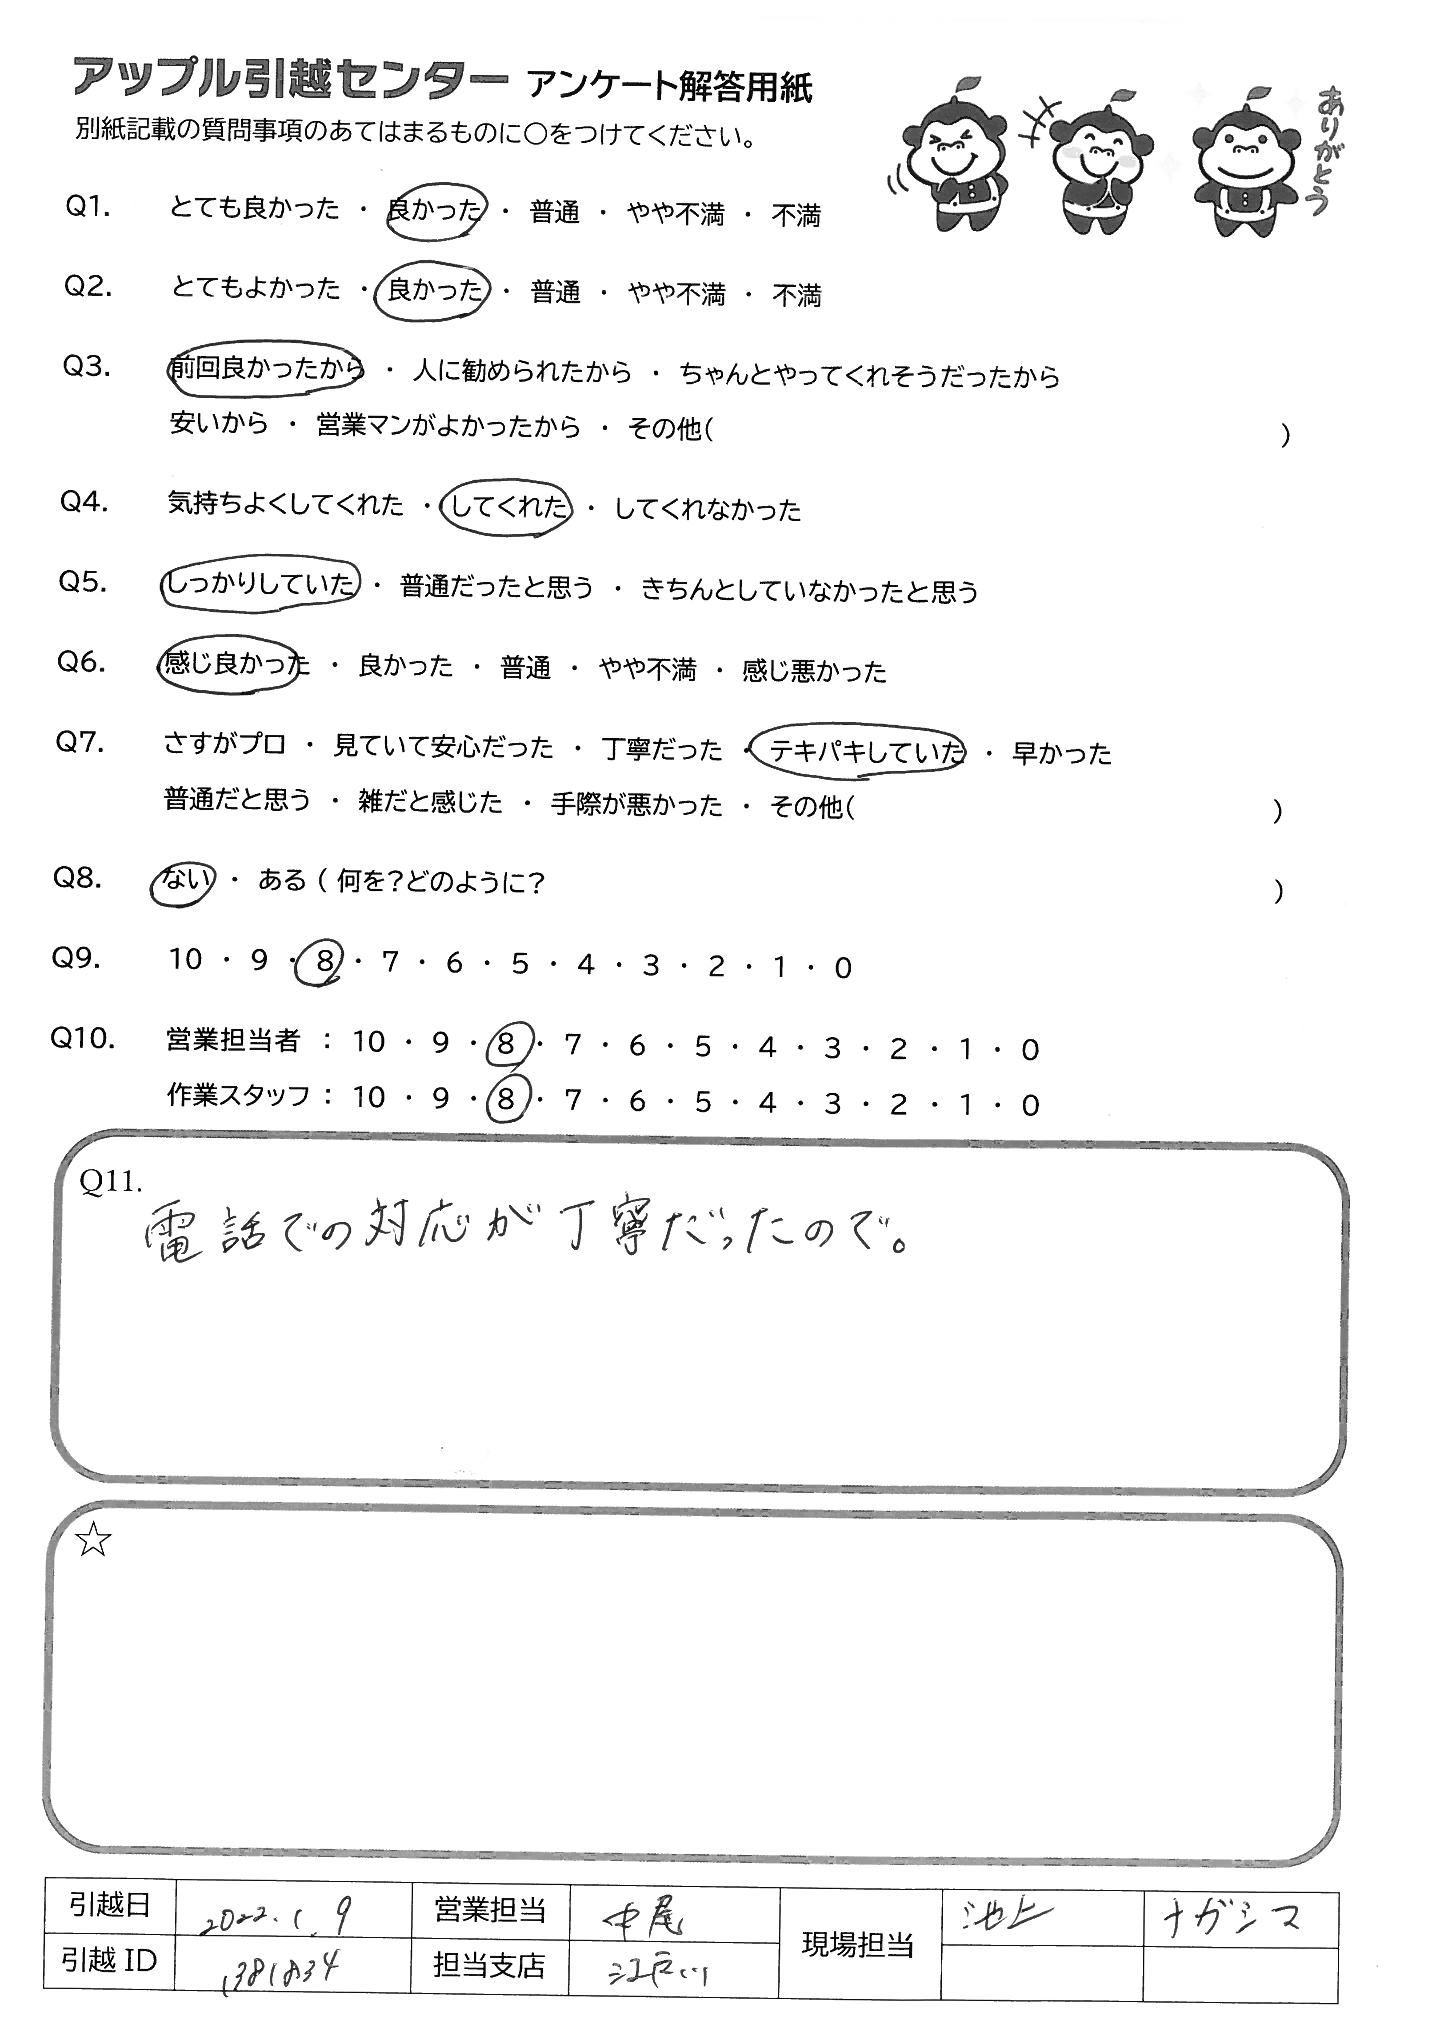 アップル引越センター アンケート解答用紙
別紙記載の質問事項のあてはまるものに○をつけてください。
ありがとう
Q1. とても良かった ・ 良かった ・ 普通 ・ やや不満 ・ 不満
Q2. とてもよかった ・ 良かった ・ 普通 ・ やや不満 ・ 不満
Q3. 前回良かったから ・ 人に勧められたから ・ ちゃんとやってくれそうだったから
安いから ・ 営業マンがよかったから ・ その他( )
Q4. 気持ちよくしてくれた ・ してくれた ・ してくれなかった
Q5. しっかりしていた ・ 普通だったと思う ・ きちんとしていなかったと思う
Q6. 感じ良かった ・ 良かった ・ 普通 ・ やや不満 ・ 感じ悪かった
Q7. さすがプロ ・ 見ていて安心だった ・ 丁寧だった ・ テキパキしていた ・ 早かった
普通だと思う ・ 雑だと感じた ・ 手際が悪かった ・ その他( )
Q8. ない ・ ある ( 何を?どのように? )
Q9. 10 ・ 9 ・ 8 ・ 7 ・ 6 ・ 5 ・ 4 ・ 3 ・ 2 ・ 1 ・ 0
Q10. 営業担当者 : 10 ・ 9 ・ 8 ・ 7 ・ 6 ・ 5 ・ 4 ・ 3 ・ 2 ・ 1 ・ 0
作業スタッフ : 10 ・ 9 ・ 8 ・ 7 ・ 6 ・ 5 ・ 4 ・ 3 ・ 2 ・ 1 ・ 0
Q11.
電話での対応が丁寧だったので。
☆
引越日 2022.1.9 営業担当 中尾 現場担当 池上 ナガシマ
引越 ID 1381834 担当支店 江戸川